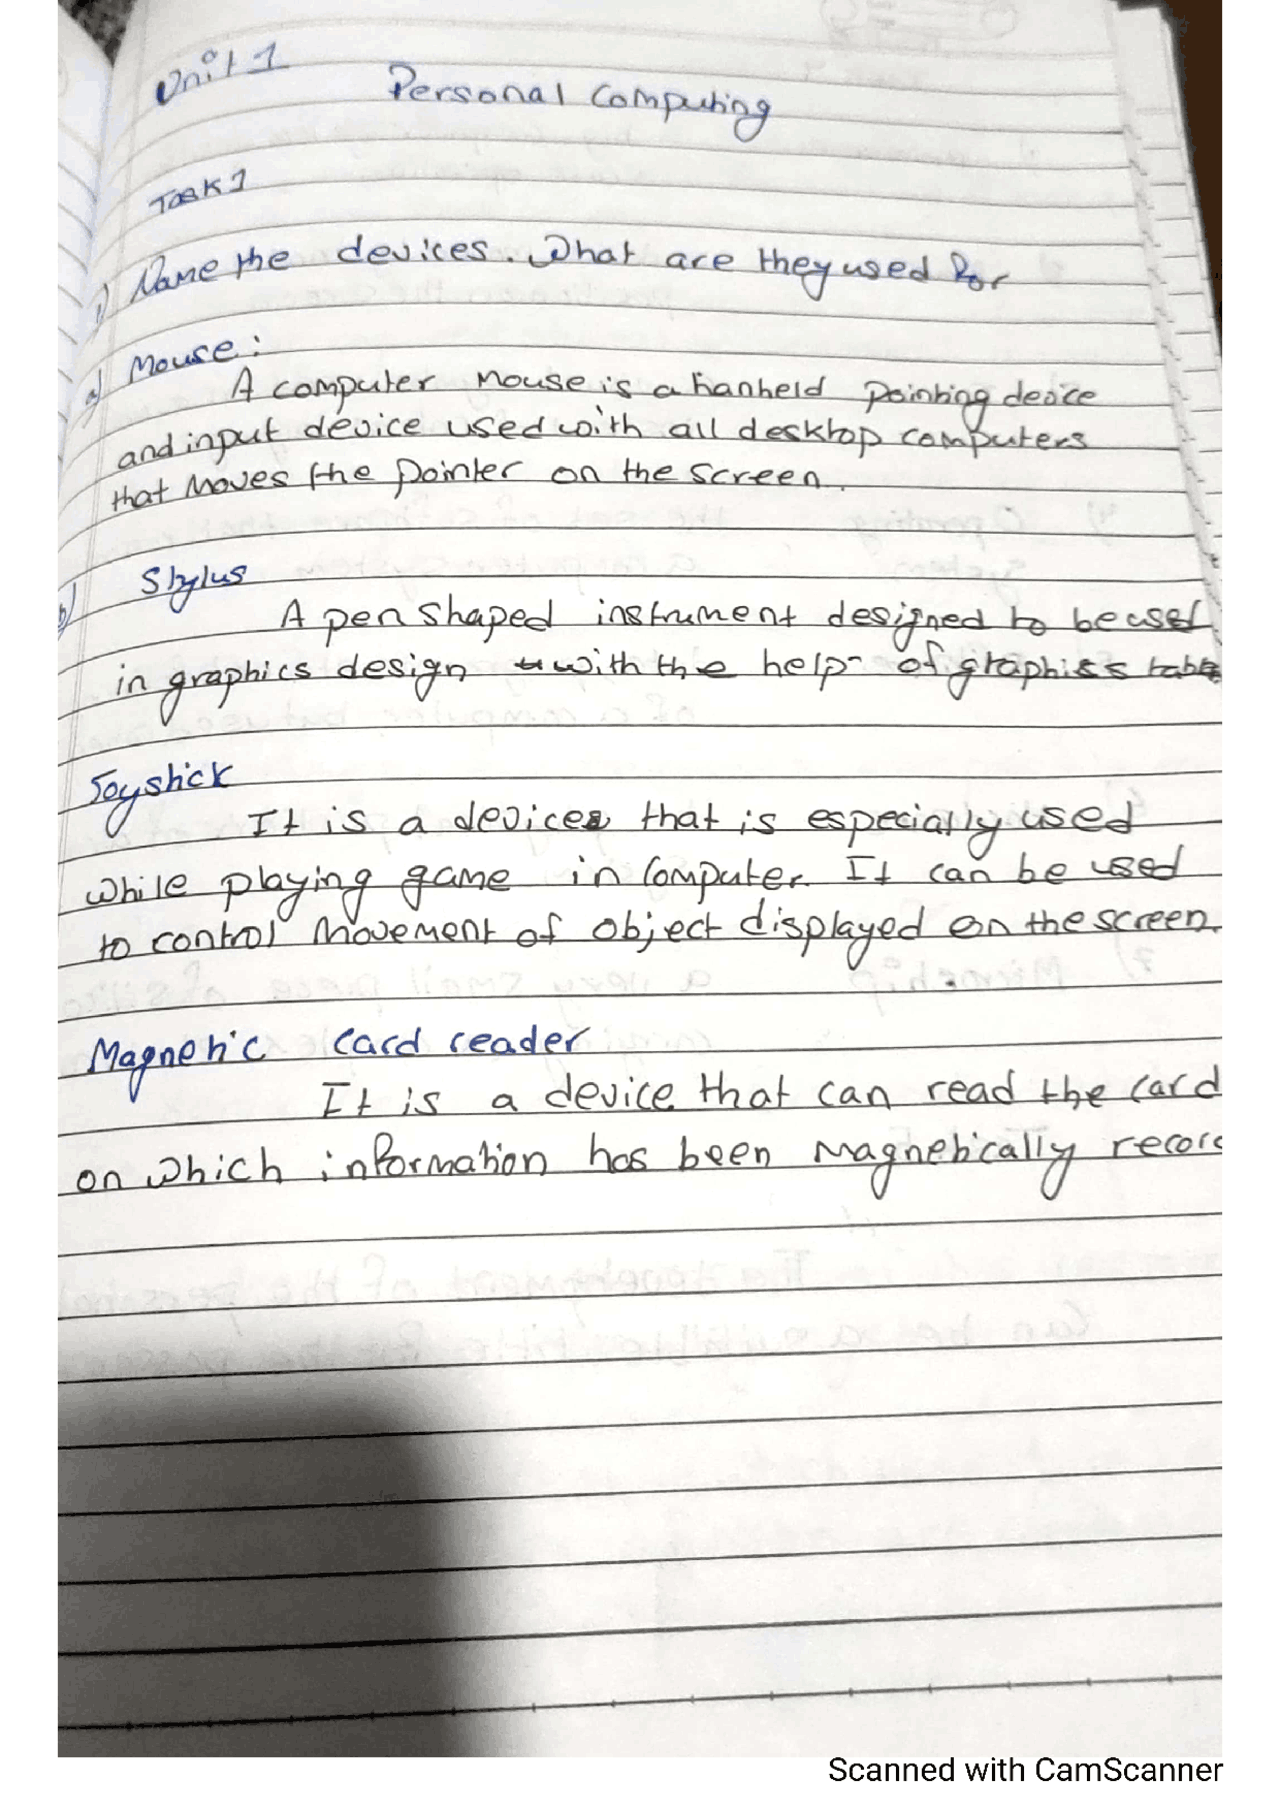 Unit 1
Personal Computing
Task 1
1) Name the devices. What are they used for
a) Mouse:
A computer mouse is a hanheld pointing device
and input device used with all desktop computers
that moves the pointer on the screen.
b) Stylus
A pen shaped instrument designed to be used
in graphics design with the help of graphiss
Joystick
It is a devices that is especially used
while playing game in Computer. It can be used
to control movement of object displayed on the screen.
Magnetic Card reader
It is a device that can read the card
on which information has been magnetically recor
Scanned with CamScanner